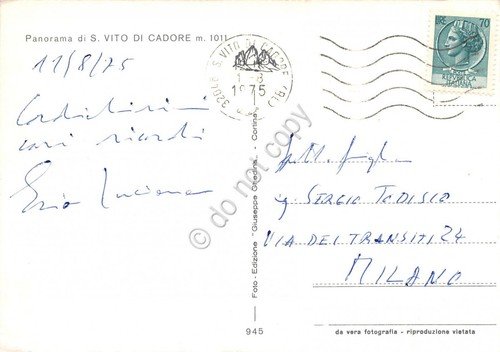 Panorama di S. VITO DI CADORE m. 1011
11/8/75
Cordialissimi
cari ricordi
Luciana
32040 S. VITO DI CADORE (BL)
1975
70
Foto-Edizione "Giuseppe Ghedina" - Cortina
do not copy
Famiglia
Sergio Todisco
VIA DEI TRANSITI 24
MILANO
945
da vera fotografia - riproduzione vietata